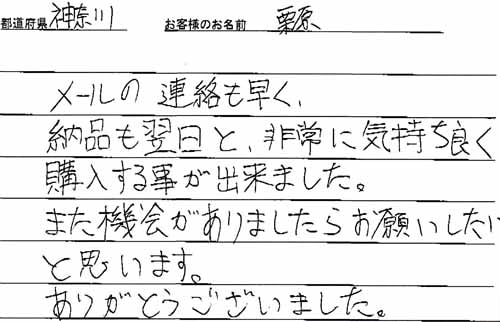 都道府県 神奈川 お客様のお名前 栗原
メールの連絡も早く、
納品も翌日と、非常に気持ち良く
購入する事が出来ました。
また機会がありましたらお願いしたい
と思います。
ありがとうございました。